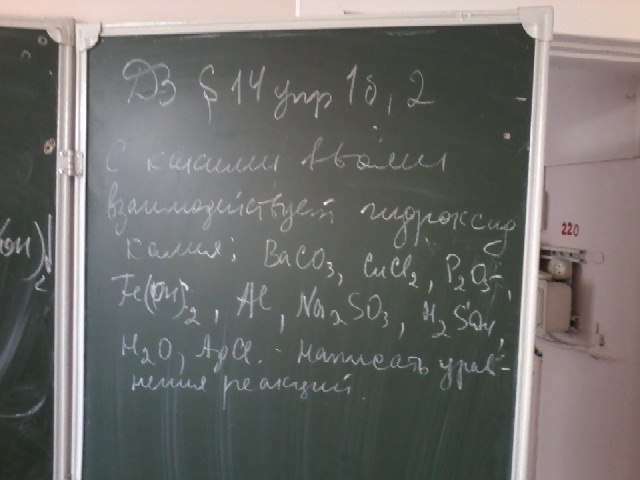 ДЗ § 14 упр 1б, 2
С какими в-вами
взаимодействует гидроксид
калия: BaCO3, CuCl2, P2O5,
Fe(OH)2, Al, Na2SO3, H2SO4,
H2O, AgCl. - Написать урав-
нения реакций.
(OH)2
220